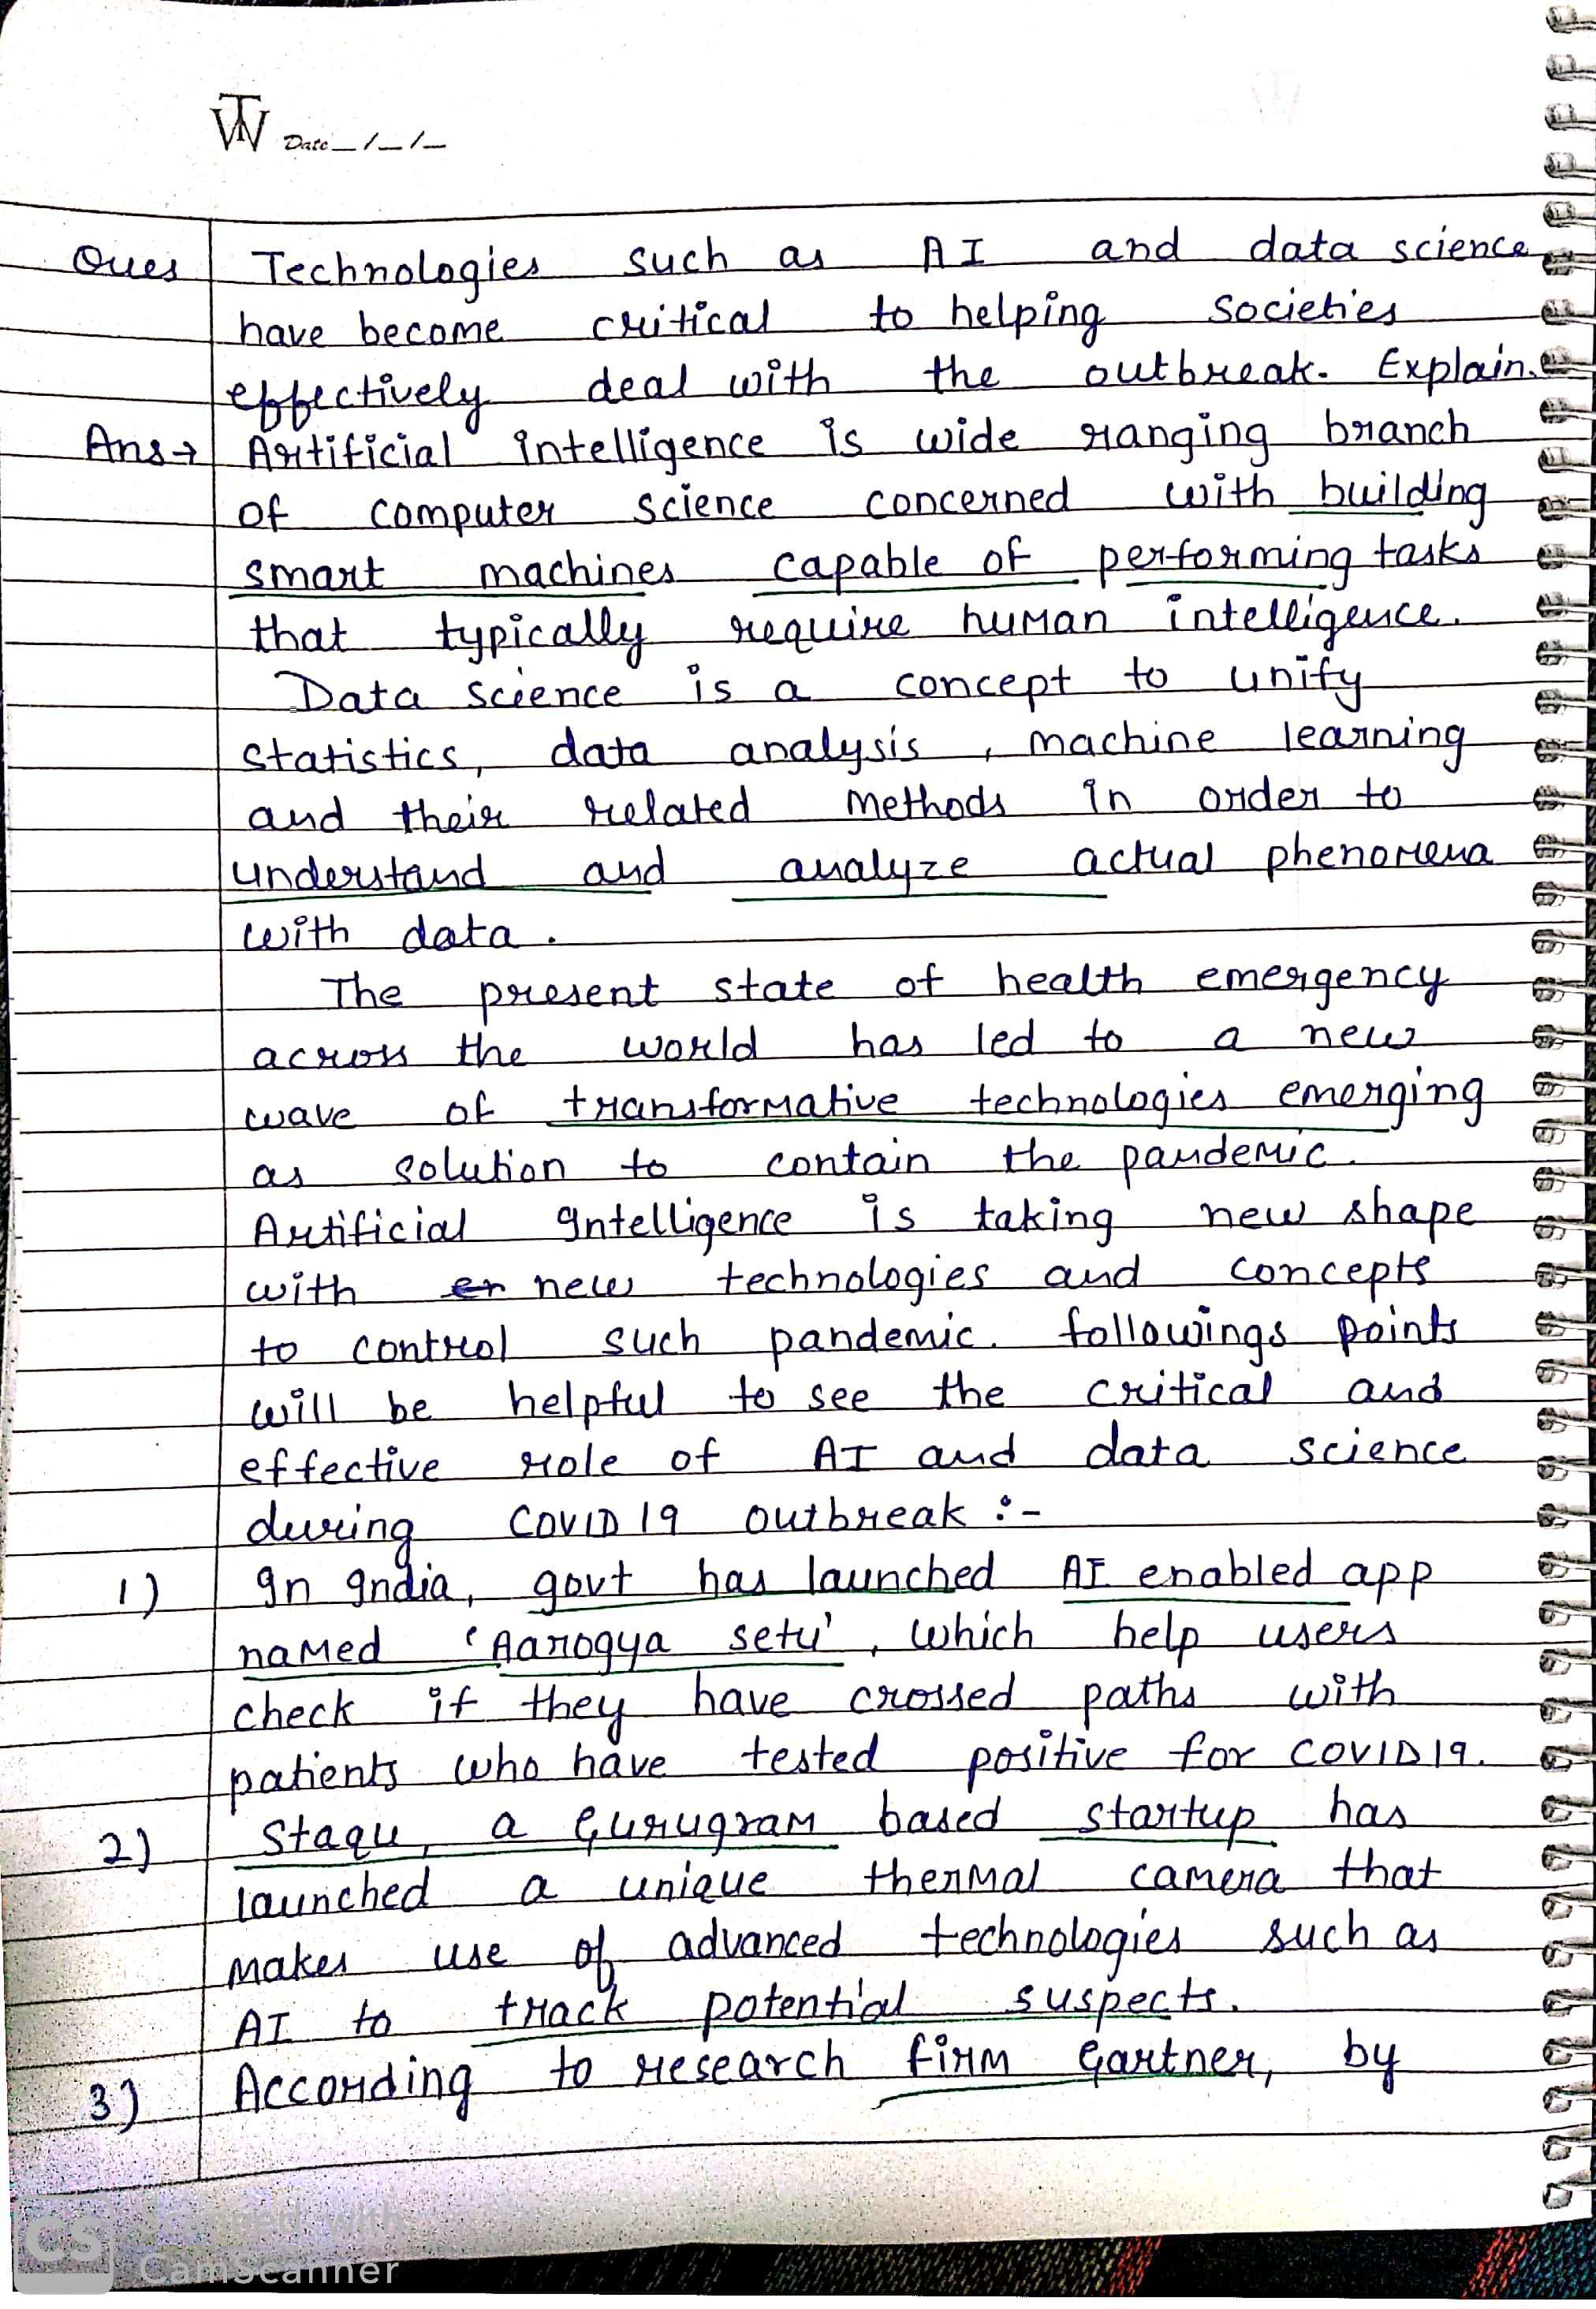 TW Date _/_/_
Ques Technologies such as AI and data science
have become critical to helping societies
effectively deal with the outbreak. Explain.
Ans→ Artificial intelligence is wide ranging branch
of computer science concerned with building
smart machines capable of performing tasks
that typically require human intelligence.
Data science is a concept to unify
statistics, data analysis, machine learning
and their related methods in order to
understand and analyze actual phenomena
with data.
The present state of health emergency
across the world has led to a new
wave of transformative technologies emerging
as solution to contain the pandemic.
Artificial Intelligence is taking new shape
with en new technologies and concepts
to control such pandemic. followings points
will be helpful to see the critical and
effective role of AI and data science
during COVID 19 outbreak :-
1) In India, govt has launched AI enabled app
named 'Aarogya setu', which help users
check if they have crossed paths with
patients who have tested positive for COVID19.
2) Staqu, a Gurugram based startup has
launched a unique thermal camera that
makes use of advanced technologies such as
AI to track potential suspects.
3) According to research firm Gartner, by
CS Scanned with
CamScanner